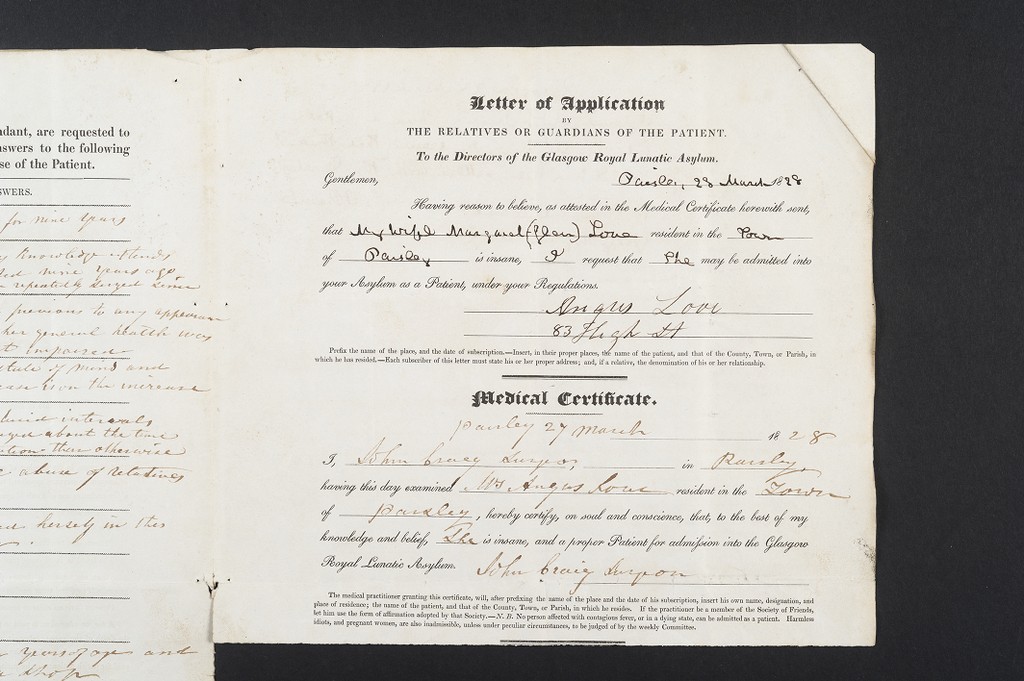 ndant, are requested to
nswers to the following
se of the Patient.
WERS.
for nine years
knowledge attends
nine years ago
repeatedly
previous to any appearan
her general health was
t impaired
state of mind and
ease is on the increase
lucid intervals
about the time
than otherwise
abuse of relatives
herself in this
years of age and
shop
Letter of Application
BY
THE RELATIVES OR GUARDIANS OF THE PATIENT.
To the Directors of the Glasgow Royal Lunatic Asylum.
Gentlemen,
Paisley, 28 March 1828
Having reason to believe, as attested in the Medical Certificate herewith sent,
that My Wife Margaret (Glen) Love resident in the Town
of Paisley is insane, I request that She may be admitted into
your Asylum as a Patient, under your Regulations.
Angus Love
83 High St
Prefix the name of the place, and the date of subscription.—Insert, in their proper places, the name of the patient, and that of the County, Town, or Parish, in
which he has resided.—Each subscriber of this letter must state his or her proper address; and, if a relative, the denomination of his or her relationship.
Medical Certificate.
Paisley 27 March 1828
I, John Craig Surgeon, in Paisley,
having this day examined Mrs Angus Love resident in the Town
of Paisley, hereby certify, on soul and conscience, that, to the best of my
knowledge and belief, She is insane, and a proper Patient for admission into the Glasgow
Royal Lunatic Asylum. John Craig Surgeon
The medical practitioner granting this certificate, will, after prefixing the name of the place and the date of his subscription, insert his own name, designation, and
place of residence; the name of the patient, and that of the County, Town, or Parish, in which he resides. If the practitioner be a member of the Society of Friends,
let him use the form of affirmation adopted by that Society.—N. B. No person affected with contagious fever, or in a dying state, can be admitted as a patient. Harmless
idiots, and pregnant women, are also inadmissible, unless under peculiar circumstances, to be judged of by the weekly Committee.